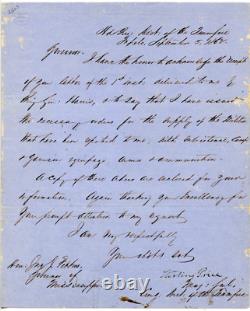 Hd Qrs Dist. of the Tennessee
Tupelo September 5, 1862
Governor,
I have the honor to acknowledge the receipt
of your letter of the 1st inst. delivered to me by
Brig. Genl. Harris, & to say that I have issued
the necessary orders for the supply of the Militia
that have been reported to me, with subsistence, Camp
& Garrison equipage arms & ammunition.
A copy of these orders are enclosed for your
information. Again thanking your Excellency for
your prompt attention to my request
I am very respectfully
Your obdt. svt.
Sterling Price
Hon: Jno. J. Pettus
Maj. Genl.
Governor of
Comg Dist. of the Tennessee
Mississippi